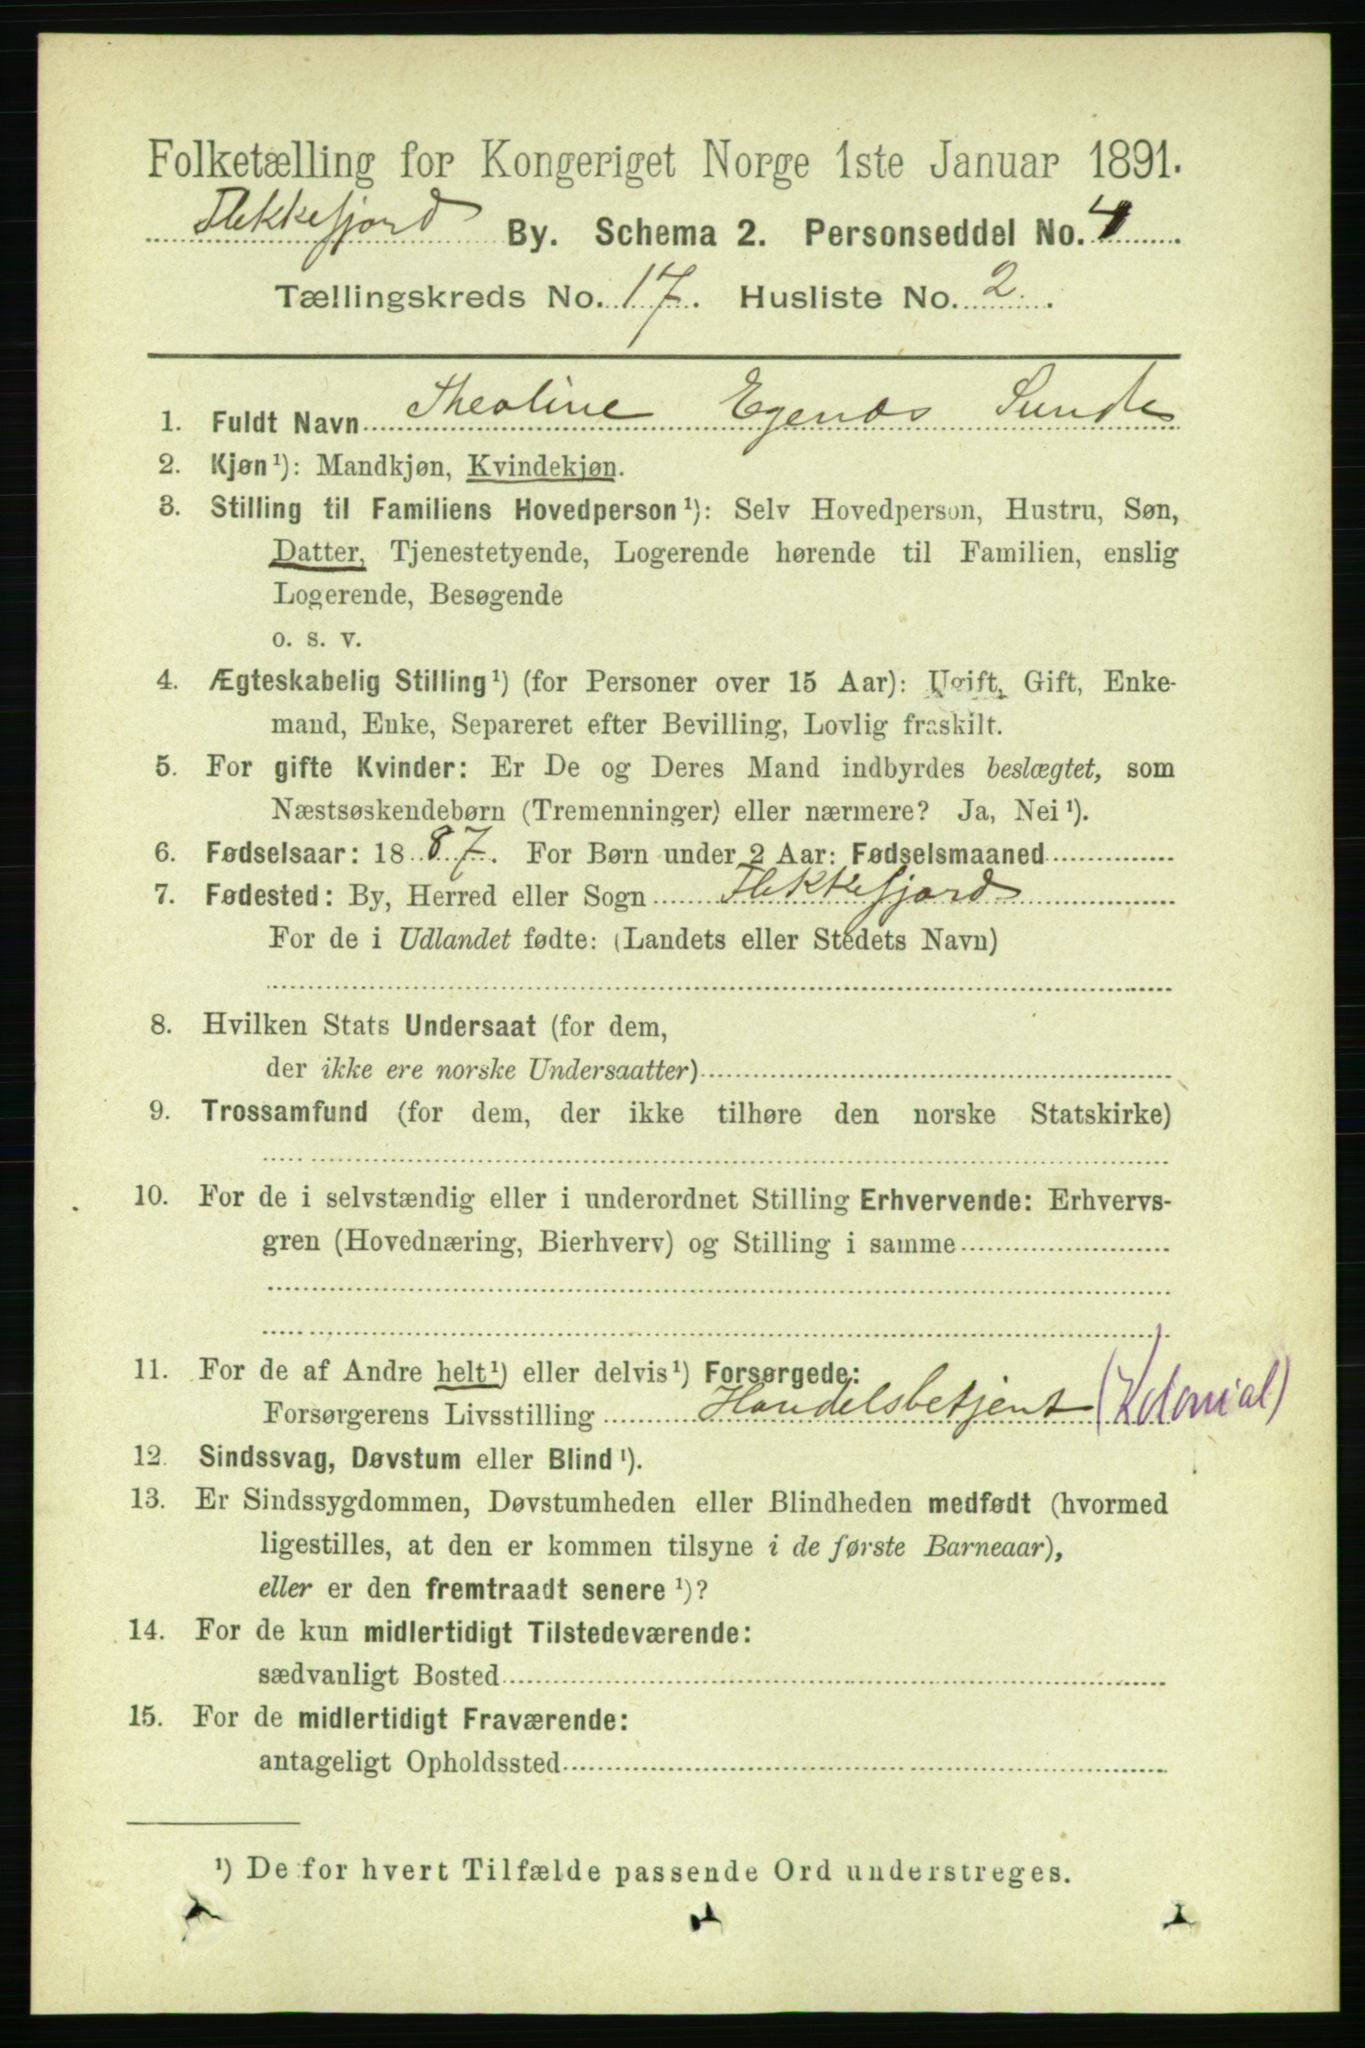 Folketælling for Kongeriget Norge 1ste Januar 1891.
Flekkefjord By. Schema 2. Personseddel No. 4
Tællingskreds No. 17. Husliste No. 2.
1. Fuldt Navn Theoline Egenæs Sunde
2. Kjøn¹): Mandkjøn, Kvindekjøn.
3. Stilling til Familiens Hovedperson¹): Selv Hovedperson, Hustru, Søn,
Datter, Tjenestetyende, Logerende hørende til Familien, enslig
Logerende, Besøgende
o. s. v.
4. Ægteskabelig Stilling¹) (for Personer over 15 Aar): Ugift, Gift, Enke-
mand, Enke, Separeret efter Bevilling, Lovlig fraskilt.
5. For gifte Kvinder: Er De og Deres Mand indbyrdes beslægtet, som
Næstsøskendebørn (Tremenninger) eller nærmere? Ja, Nei¹).
6. Fødselsaar: 1887. For Børn under 2 Aar: Fødselsmaaned
7. Fødested: By, Herred eller Sogn Flekkefjord
For de i Udlandet fødte: (Landets eller Stedets Navn)
8. Hvilken Stats Undersaat (for dem,
der ikke ere norske Undersaatter)
9. Trossamfund (for dem, der ikke tilhøre den norske Statskirke)
10. For de i selvstændig eller i underordnet Stilling Erhvervende: Erhvervs-
gren (Hovednæring, Bierhverv) og Stilling i samme
11. For de af Andre helt¹) eller delvis¹) Forsørgede:
Forsørgerens Livsstilling Handelsbetjent (Kolonial)
12. Sindssvag, Døvstum eller Blind¹).
13. Er Sindssygdommen, Døvstumheden eller Blindheden medfødt (hvormed
ligestilles, at den er kommen tilsyne i de første Barneaar),
eller er den fremtraadt senere¹)?
14. For de kun midlertidigt Tilstedeværende:
sædvanligt Bosted
15. For de midlertidigt Fraværende:
antageligt Opholdssted
¹) De for hvert Tilfælde passende Ord understreges.